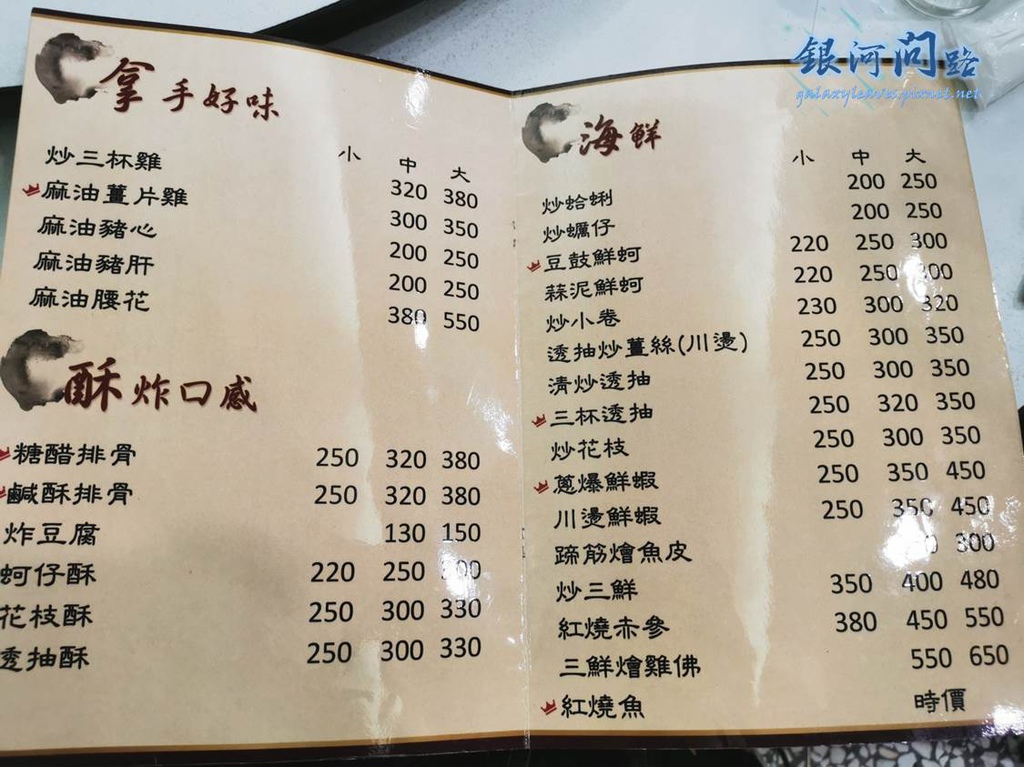 銀河問路
galaxyleaves.pixnet.net
拿手好味
小 中 大
炒三杯雞 320 380
麻油薑片雞 300 350
麻油豬心 200 250
麻油豬肝 200 250
麻油腰花 380 550
酥炸口感
糖醋排骨 250 320 380
鹹酥排骨 250 320 380
炸豆腐 130 150
蚵仔酥 220 250
花枝酥 250 300 330
透抽酥 250 300 330
海鮮
小 中 大
炒蛤蜊 200 250
炒蠣仔 200 250
豆鼓鮮蚵 220 250 300
蒜泥鮮蚵 220 250 300
炒小卷 230 300 320
透抽炒薑絲(川燙) 250 300 350
清炒透抽 250 300 350
三杯透抽 250 320 350
炒花枝 250 300 350
蔥爆鮮蝦 250 350 450
川燙鮮蝦 250 350 450
蹄筋燴魚皮 300
炒三鮮 350 400 480
紅燒赤參 380 450 550
三鮮燴雞佛 550 650
紅燒魚 時價